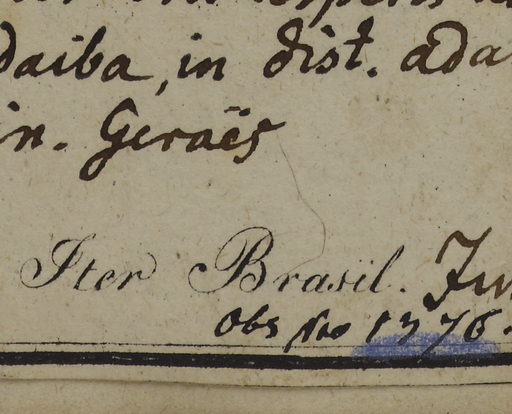 daiba, in dist. ada
in. Geraës
Iter Brasil. Ju
Obs No 1376.